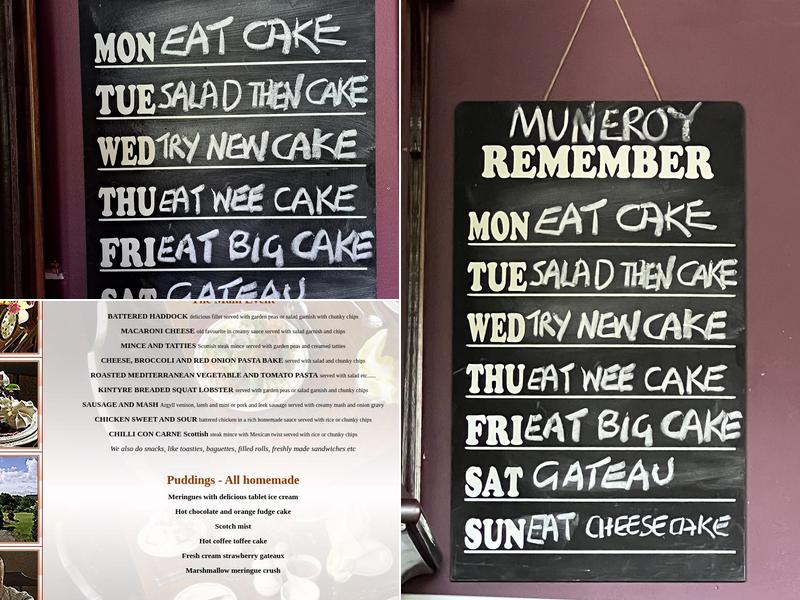 MON EAT CAKE
TUE SALAD THEN CAKE
WED TRY NEW CAKE
THU EAT WEE CAKE
FRI EAT BIG CAKE
SAT GATEAU
The Main Event
BATTERED HADDOCK delicious fillet served with garden peas or salad garnish with chunky chips
MACARONI CHEESE old favourite in creamy sauce served with salad garnish and chips
MINCE AND TATTIES Scottish steak mince served with garden peas and creamed tatties
CHEESE, BROCCOLI AND RED ONION PASTA BAKE served with salad and chunky chips
ROASTED MEDITERRANEAN VEGETABLE AND TOMATO PASTA served with salad etc......
KINTYRE BREADED SQUAT LOBSTER served with garden peas or salad garnish and chunky chips
SAUSAGE AND MASH Argyll venison, lamb and mint or pork and leek sausage served with creamy mash and onion gravy
CHICKEN SWEET AND SOUR battered chicken in a rich homemade sauce served with rice or chunky chips
CHILLI CON CARNE Scottish steak mince with Mexican twist served with rice or chunky chips
We also do snacks, like toasties, baguettes, filled rolls, freshly made sandwiches etc
Puddings - All homemade
Meringues with delicious tablet ice cream
Hot chocolate and orange fudge cake
Scotch mist
Hot coffee toffee cake
Fresh cream strawberry gateaux
Marshmallow meringue crush
MUNEROY
REMEMBER
MON EAT CAKE
TUE SALAD THEN CAKE
WED TRY NEW CAKE
THU EAT WEE CAKE
FRI EAT BIG CAKE
SAT GATEAU
SUN EAT CHEESECAKE